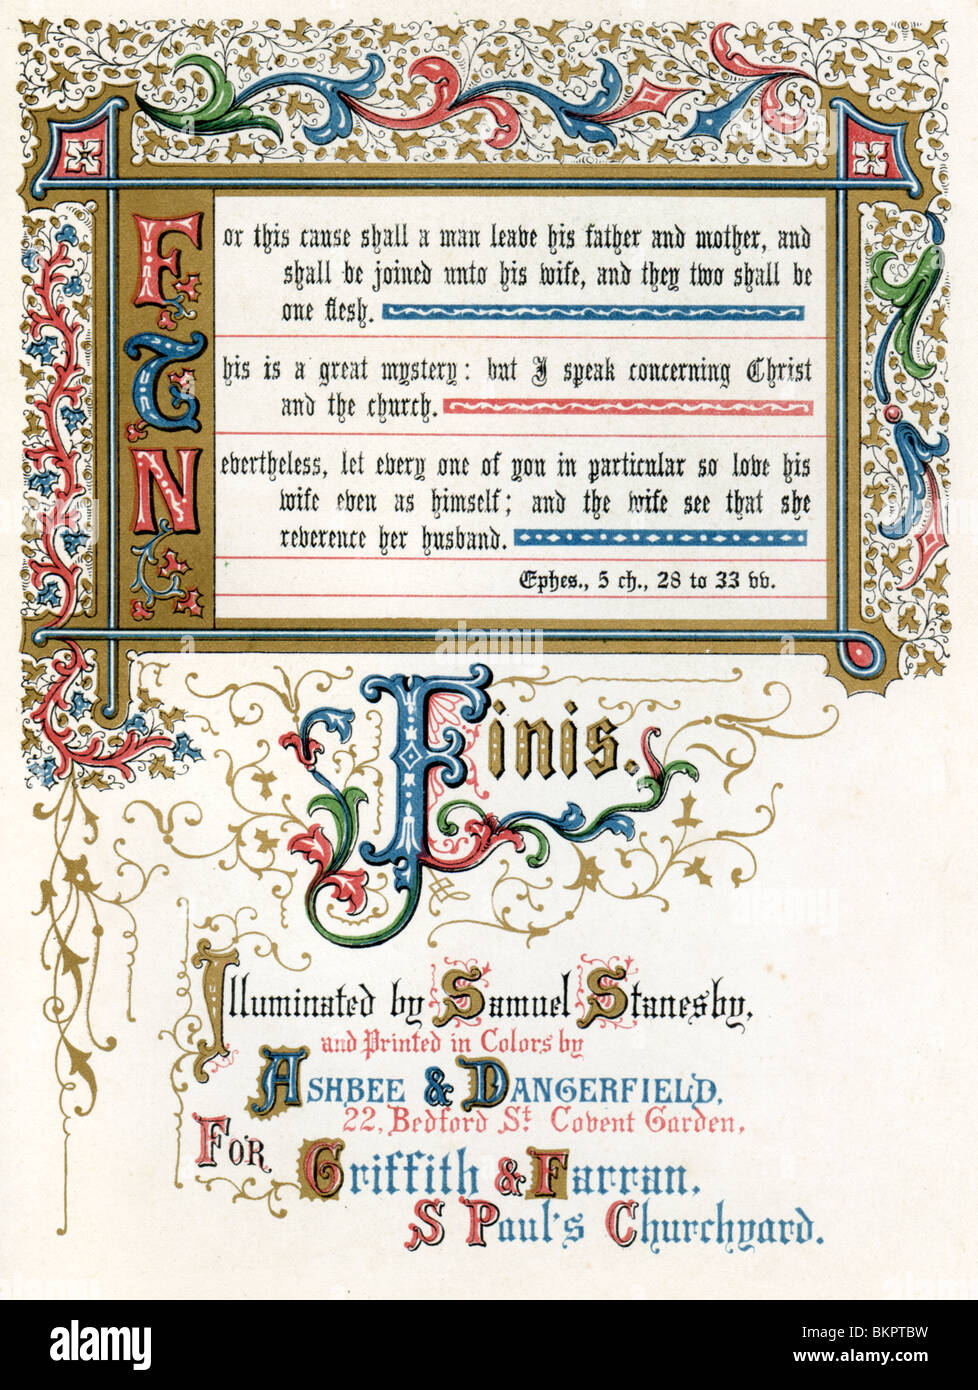 For this cause shall a man leave his father and mother, and
shall be joined unto his wife, and they two shall be
one flesh.
This is a great mystery: but I speak concerning Christ
and the church.
Nevertheless, let every one of you in particular so love his
wife even as himself; and the wife see that she
reverence her husband.
Ephes., 5 ch., 28 to 33 vv.
Finis.
Illuminated by Samuel Stanesby,
and Printed in Colors by
ASHBEE & DANGERFIELD,
22, Bedford St. Covent Garden,
FOR Griffith & Farran,
S Paul's Churchyard.
alamy
Image ID: BKPTBW
www.alamy.com